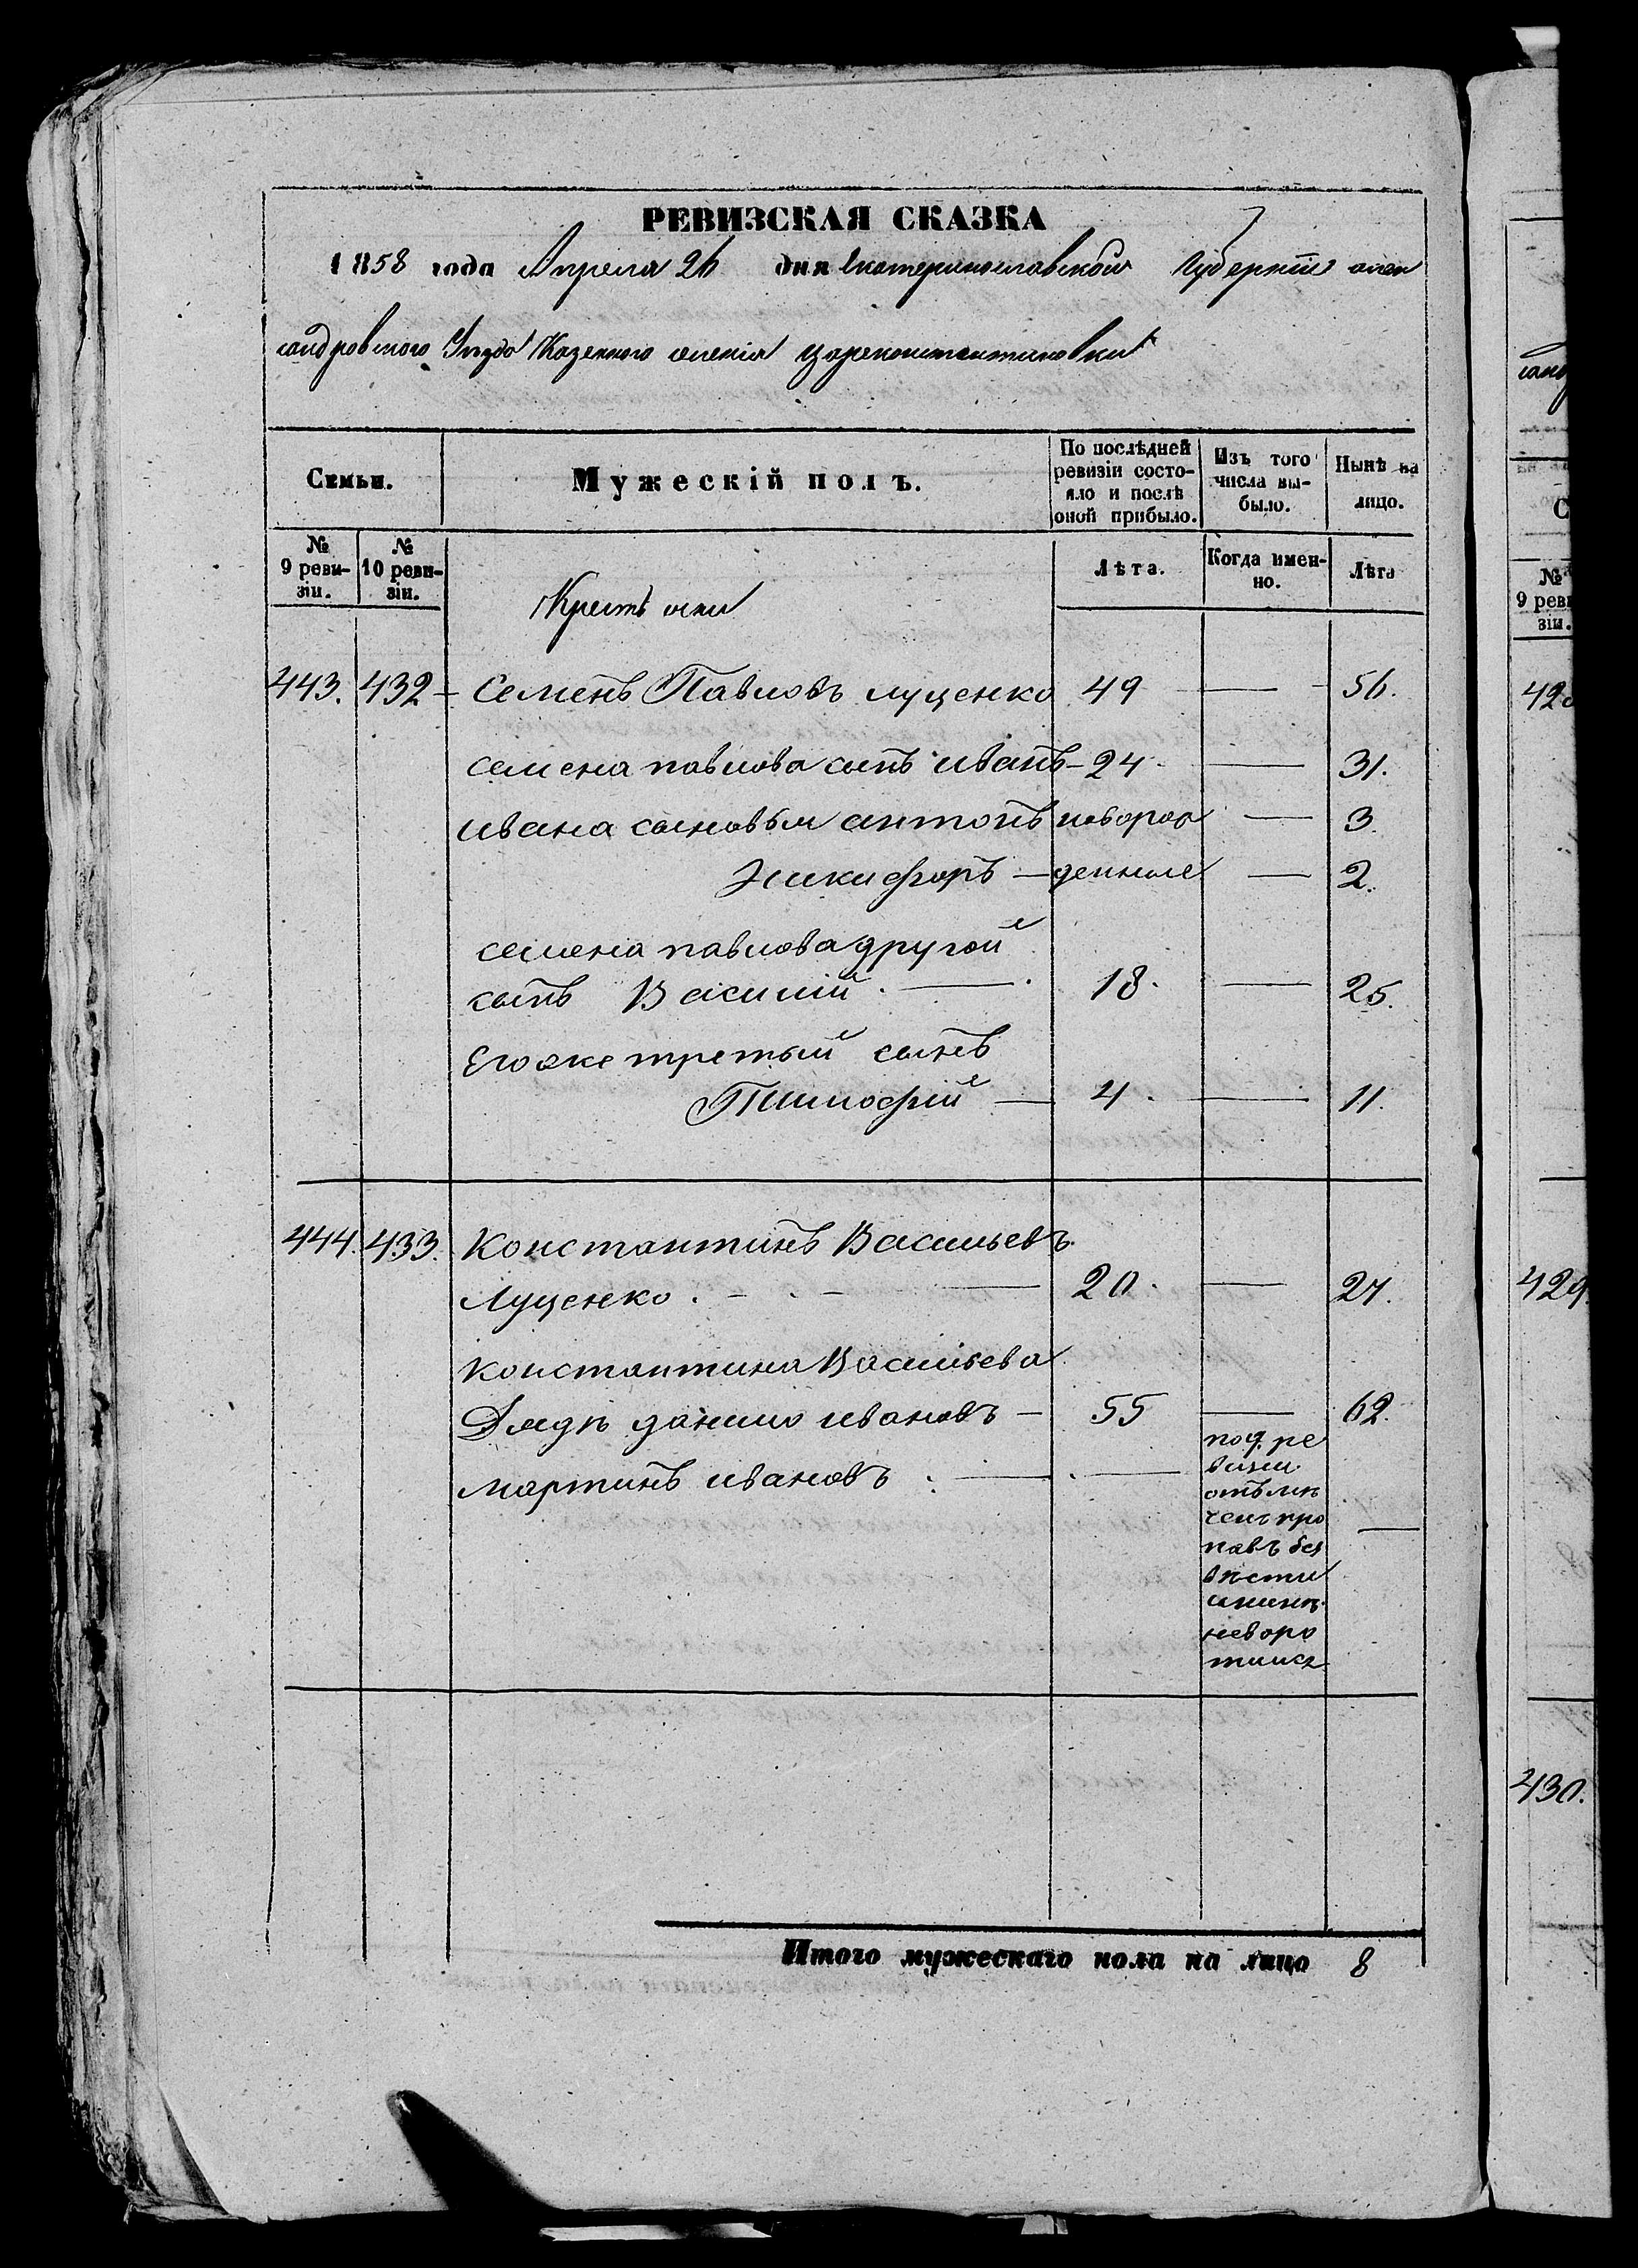 РЕВИЗСКАЯ СКАЗКА
1858 года Апреля 26 дня Екатеринославской Губернiи алек
сандровского Уѣзда Казенного селенiя Цареконстантиновки
Семьи.
Мужескiй полъ.
По послѣдней ревизiи состо-
яло и послѣ
оной прибыло.
Изъ того
числа вы-
было.
Нынѣ на
лицо.
№
9 реви-
зiи.
№
10 реви-
зiи.
Лѣта.
Когда имен-
но.
Лѣта
Крестьяни
443. 432 Семенъ Павловъ луценко 49 — 56.
семена павлова сынъ иванъ 24 — 31.
ивана сыновья антонъ новорож — 3.
Никифоръ — денные — 2.
семена павлова другой
сынъ Василiй — 18. — 25.
Егоже третый сынъ
Тимофiй — 4. — 11.
444. 433. Константинъ Васильевъ
Луценко — 20. — 27.
Константина Васильева
Дядя данило ивановъ — 55 — 62.
мартинъ ивановъ
под. ре
визи
отъмѣ
ченъ про
павъ без
вѣсти
неворо
тился
—
Итого мужескаго пола на лицо 8
санд
С
№
9 реви
зiи.
428
429.
430.